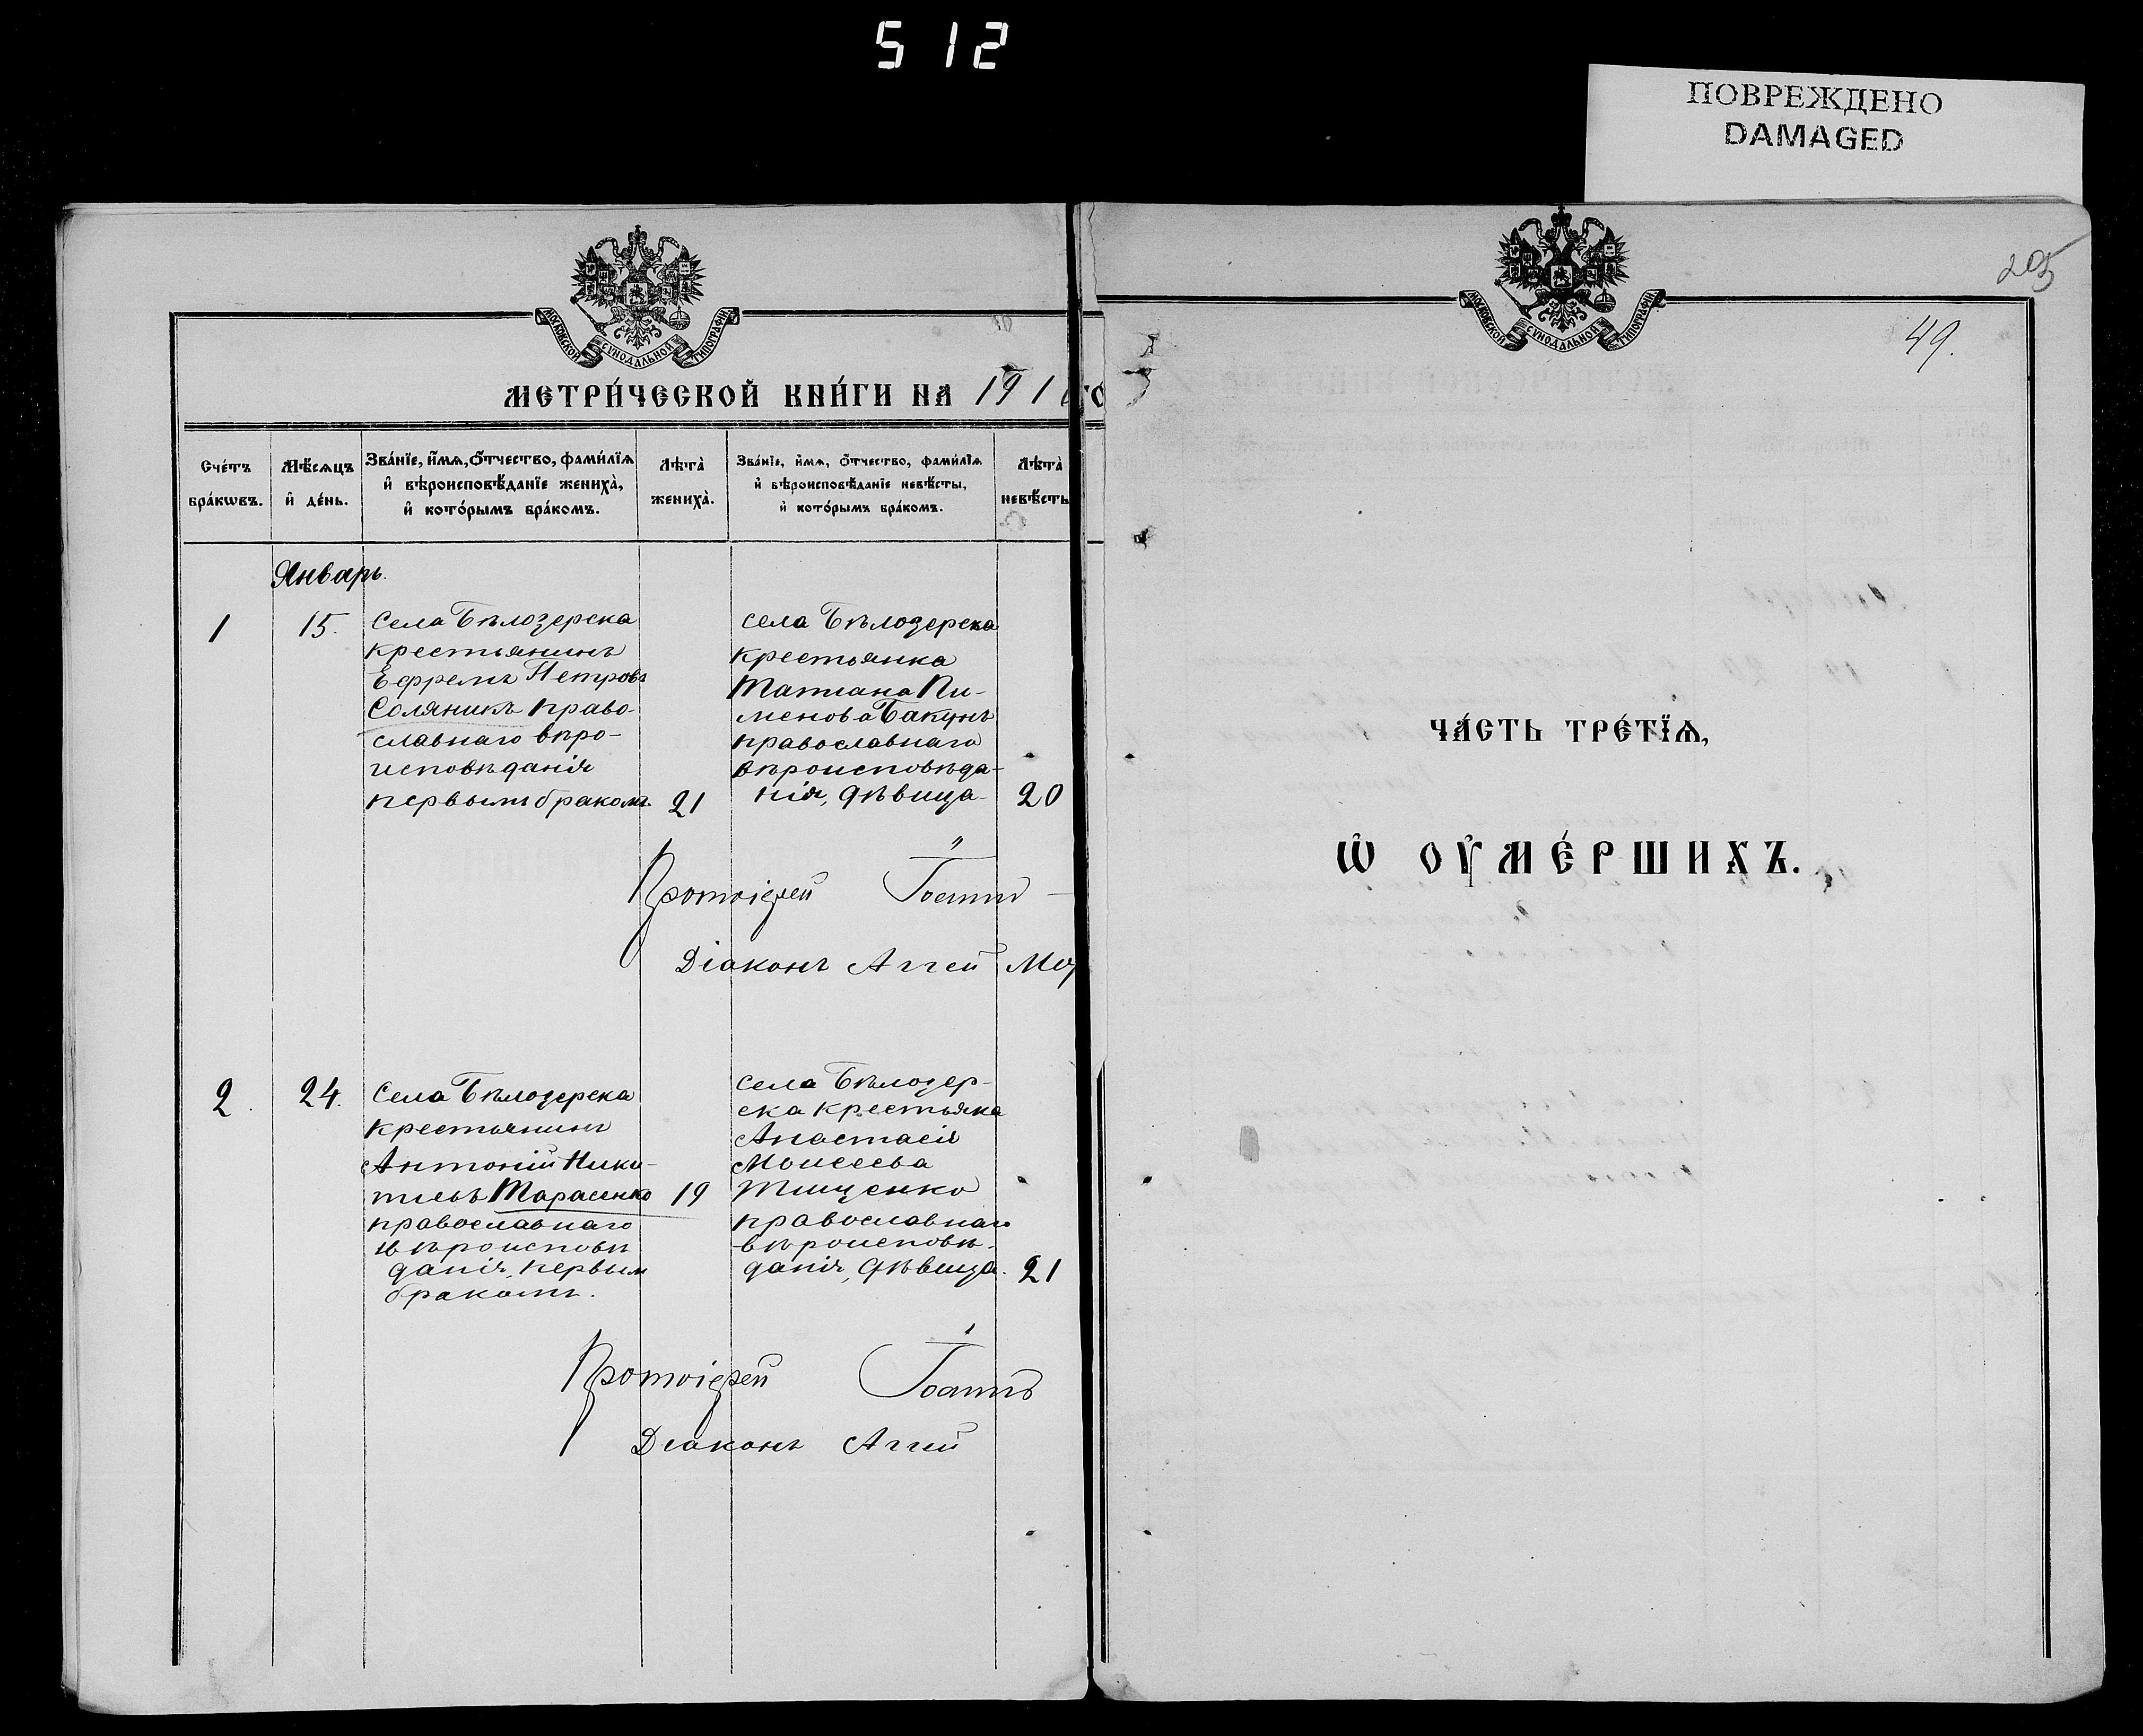 512
ПОВРЕЖДЕНО
DAMAGED
МОСКОВСКОЙ СѴНОДАЛЬНОЙ ТИПОГРАФІИ
МЕТРИ́ЧЕСКОЙ КНИ́ГИ НА 191
Сче́тъ бра́кѡвъ.
Мѣ́сѧцъ и҆ де́нь.
Зва́нїе, и҆́мѧ, ѻ҆́тчество, фами́лїѧ
и҆ вѣроисповѣ́данїе жениха̀,
и҆ кото́рымъ бра́комъ.
Лѣта̀ жениха̀.
Зва́нїе, и҆́мѧ, ѻ҆́тчество, фами́лїѧ
и҆ вѣроисповѣ́данїе невѣ́сты,
и҆ кото́рымъ бра́комъ.
Лѣта̀ невѣ́сты
Январь.
1
15.
Села Бѣлозерска
крестьянинъ
Ефремъ Петровъ
Соляникъ право-
славнаго вѣро-
исповѣданія
первымъ бракомъ.
21
села Бѣлозерска
крестьянка
Татиана Пи-
менова Бакунъ
православнаго
вѣроисповѣда-
нія, дѣвица
20
Протоіерей Іоаннъ
Діаконъ Аггей
2.
24.
Села Бѣлозерска
крестьянинъ
Антоній Ники-
тиевъ Тарасенко
православнаго
вѣроисповѣ
данія, первым
бракомъ.
19
села Бѣлозер-
ска крестьянка
Анастасія
Моисеева
Тищенко
православнаго
вѣроисповѣ-
данія, дѣвица.
21
Протоіерей Іоаннъ
Діаконъ Аггей
МОСКОВСКОЙ СѴНОДАЛЬНОЙ ТИПОГРАФІИ
205
49.
ЧА́СТЬ ТРЕ́ТЇѦ,
Ѡ҆ ОУ҆МЕ́РШИХЪ.